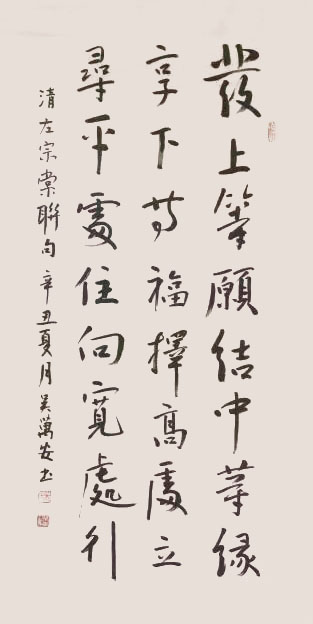 發上等願結中等緣
享下等福擇高處立
尋平處住向寬處行
清左宗棠聯句辛丑夏月吳萬安书